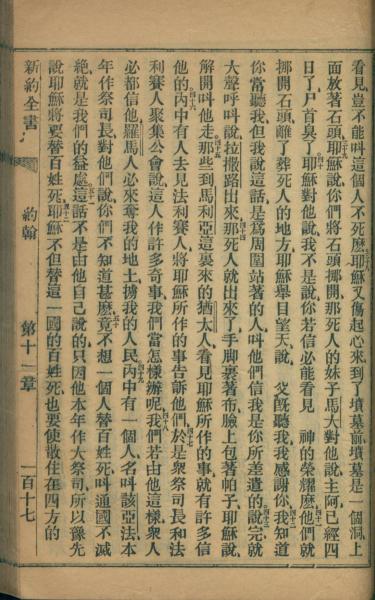 看見、豈不能叫這個人不死麼、三十八耶穌又傷起心來、到了墳墓前、墳墓是一個洞、上
面放著石頭、三十九耶穌說、你們將石頭挪開、那死人的妹子馬大對他說、主阿、已經四
日了、尸首臭了、四十耶穌對他說、我不是說你若信、必能看見　神的榮耀麼、四十一他們就
挪開石頭、離了葬死人的地方、耶穌舉目望天說、　父旣聽我、我感謝你、四十二我知道
你常聽我、但我說這話、是爲周圍站著的人、叫他們信我是你所差遣的、四十三說完就
大聲呼叫說、拉撒路出來、四十四那死人就出來了、手脚裹著布、臉上包著帕子、耶穌說、
解開叫他走、四十五那些到馬利亞這裏來的猶太人、看見耶穌所作的事、就有許多信
他的、四十六內中有人去見法利賽人、將耶穌所作的事告訴他們、四十七於是衆祭司長和法
利賽人聚集公會說、這人作許多奇事、我們當怎樣辦呢、四十八我們若由他這樣、衆人
必都信他、羅馬人必來奪我的地土、擄我的人民、四十九內中有一個人、名叫該亞法、本
年作祭司長、對他們說、你們不知道甚麼、五十竟不想一個人替百姓死、叫通國不滅
絕、就是我們的益處、五十一這話不是由他自己說的、只因他本年作大祭司、所以豫先
說耶穌將要替百姓死、五十二耶穌不但替這一國的百姓死、也要使散住在四方的
新約全書　約翰　第十一章　一百十七